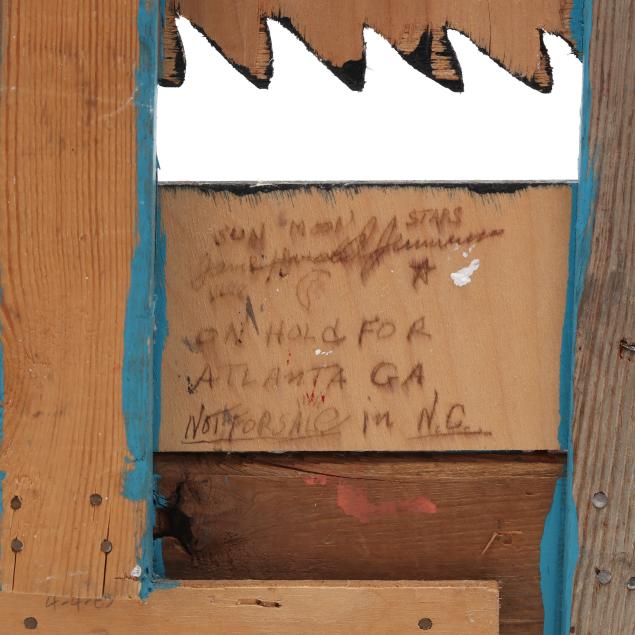 SUN MOON STARS
ON HOLd FOR
ATLANTA GA
NOT FOR SALE in N.C.